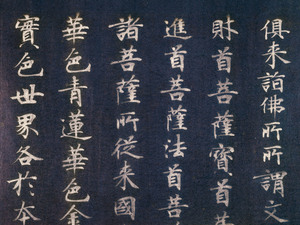 俱来詣佛所所謂文
財首菩薩寳首菩
進首菩薩法首菩
諸菩薩所従来國
華色青蓮華色金
寳色世界各於本